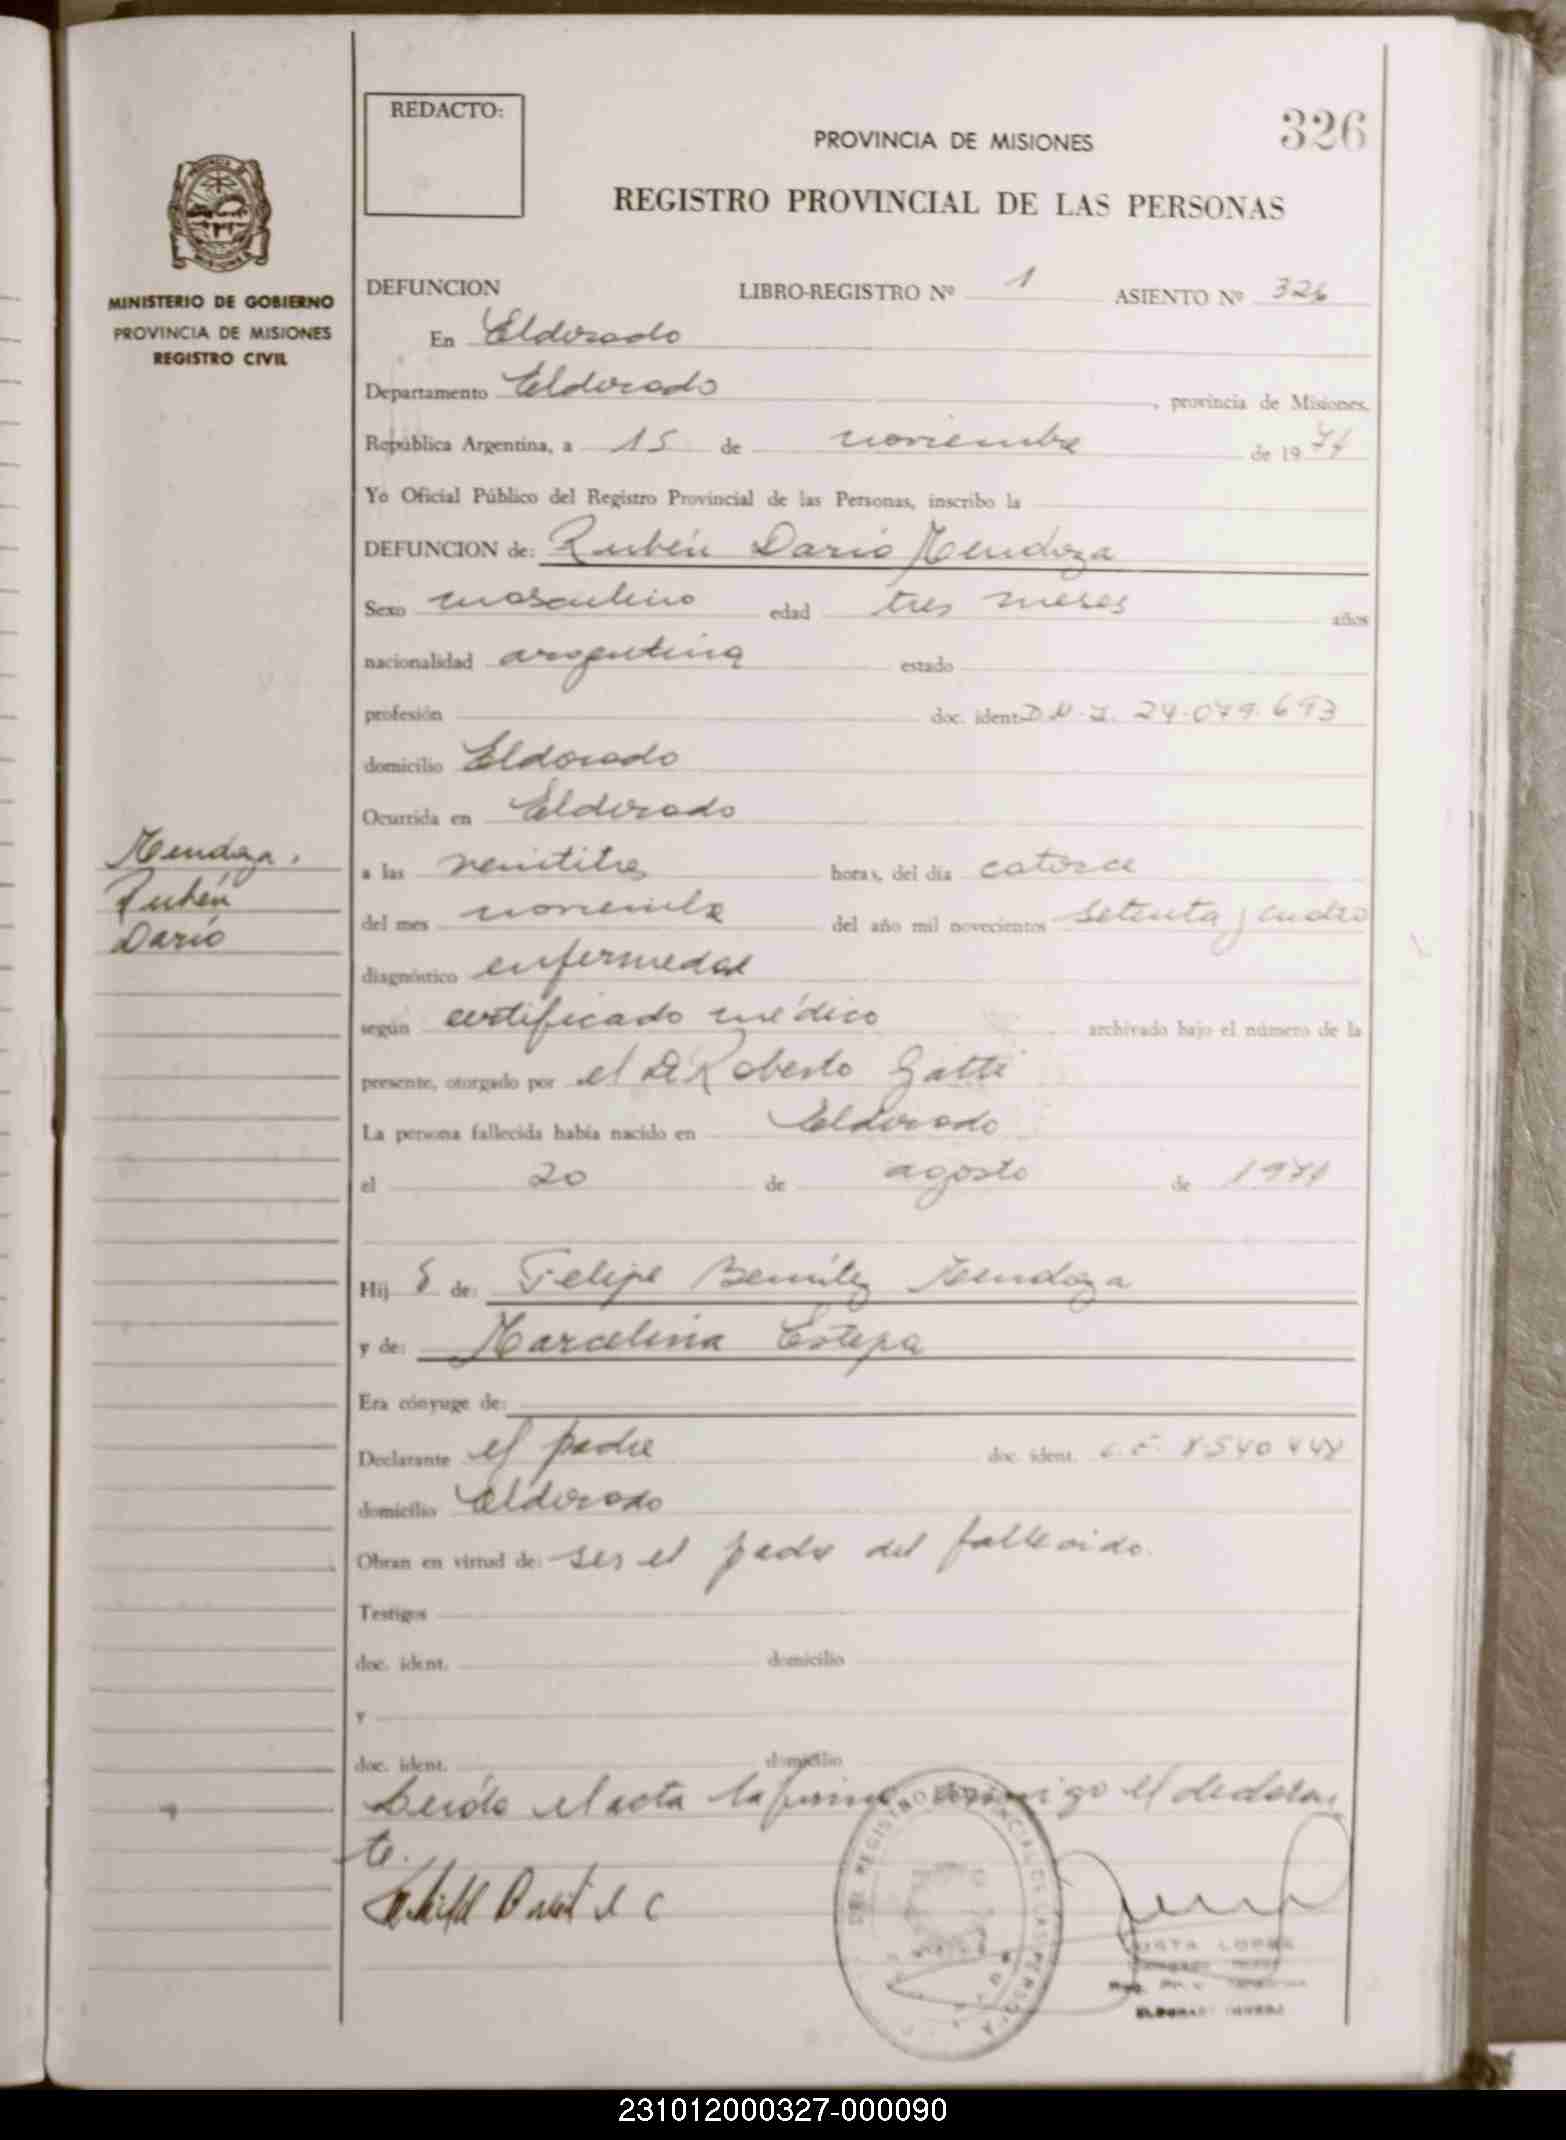 REDACTO:
PROVINCIA DE MISIONES
326
REGISTRO PROVINCIAL DE LAS PERSONAS
MINISTERIO DE GOBIERNO
PROVINCIA DE MISIONES
REGISTRO CIVIL
DEFUNCION LIBRO-REGISTRO Nº 1 ASIENTO Nº 326
En Eldorado
Departamento Eldorado, provincia de Misiones,
República Argentina, a 15 de noviembre de 1974
Yo Oficial Público del Registro Provincial de las Personas, inscribo la
DEFUNCION de: Rubén Darío Mendoza
Sexo masculino edad tres meses años
nacionalidad argentina estado
profesión doc. ident. D.N.I. 24.079.693
domicilio Eldorado
Ocurrida en Eldorado
Mendoza,
Rubén
Darío
a las veintitres horas, del día catorce
del mes noviembre del año mil novecientos setenta y cuatro
diagnóstico enfermedad
según certificado médico archivado bajo el número de la
presente, otorgado por el Dr Roberto Gatti
La persona fallecida había nacido en Eldorado
el 20 de agosto de 1974
Hij o de: Felipe Benítez Mendoza
y de: Marcelina Estepa
Era cónyuge de:
Declarante el padre doc. ident.
domicilio Eldorado
Obran en virtud de: ser el padre del fallecido.
Testigos
doc. ident. domicilio
y
doc. ident. domicilio
Leída el acta la firma conmigo el declaran
te.
231012000327-000090